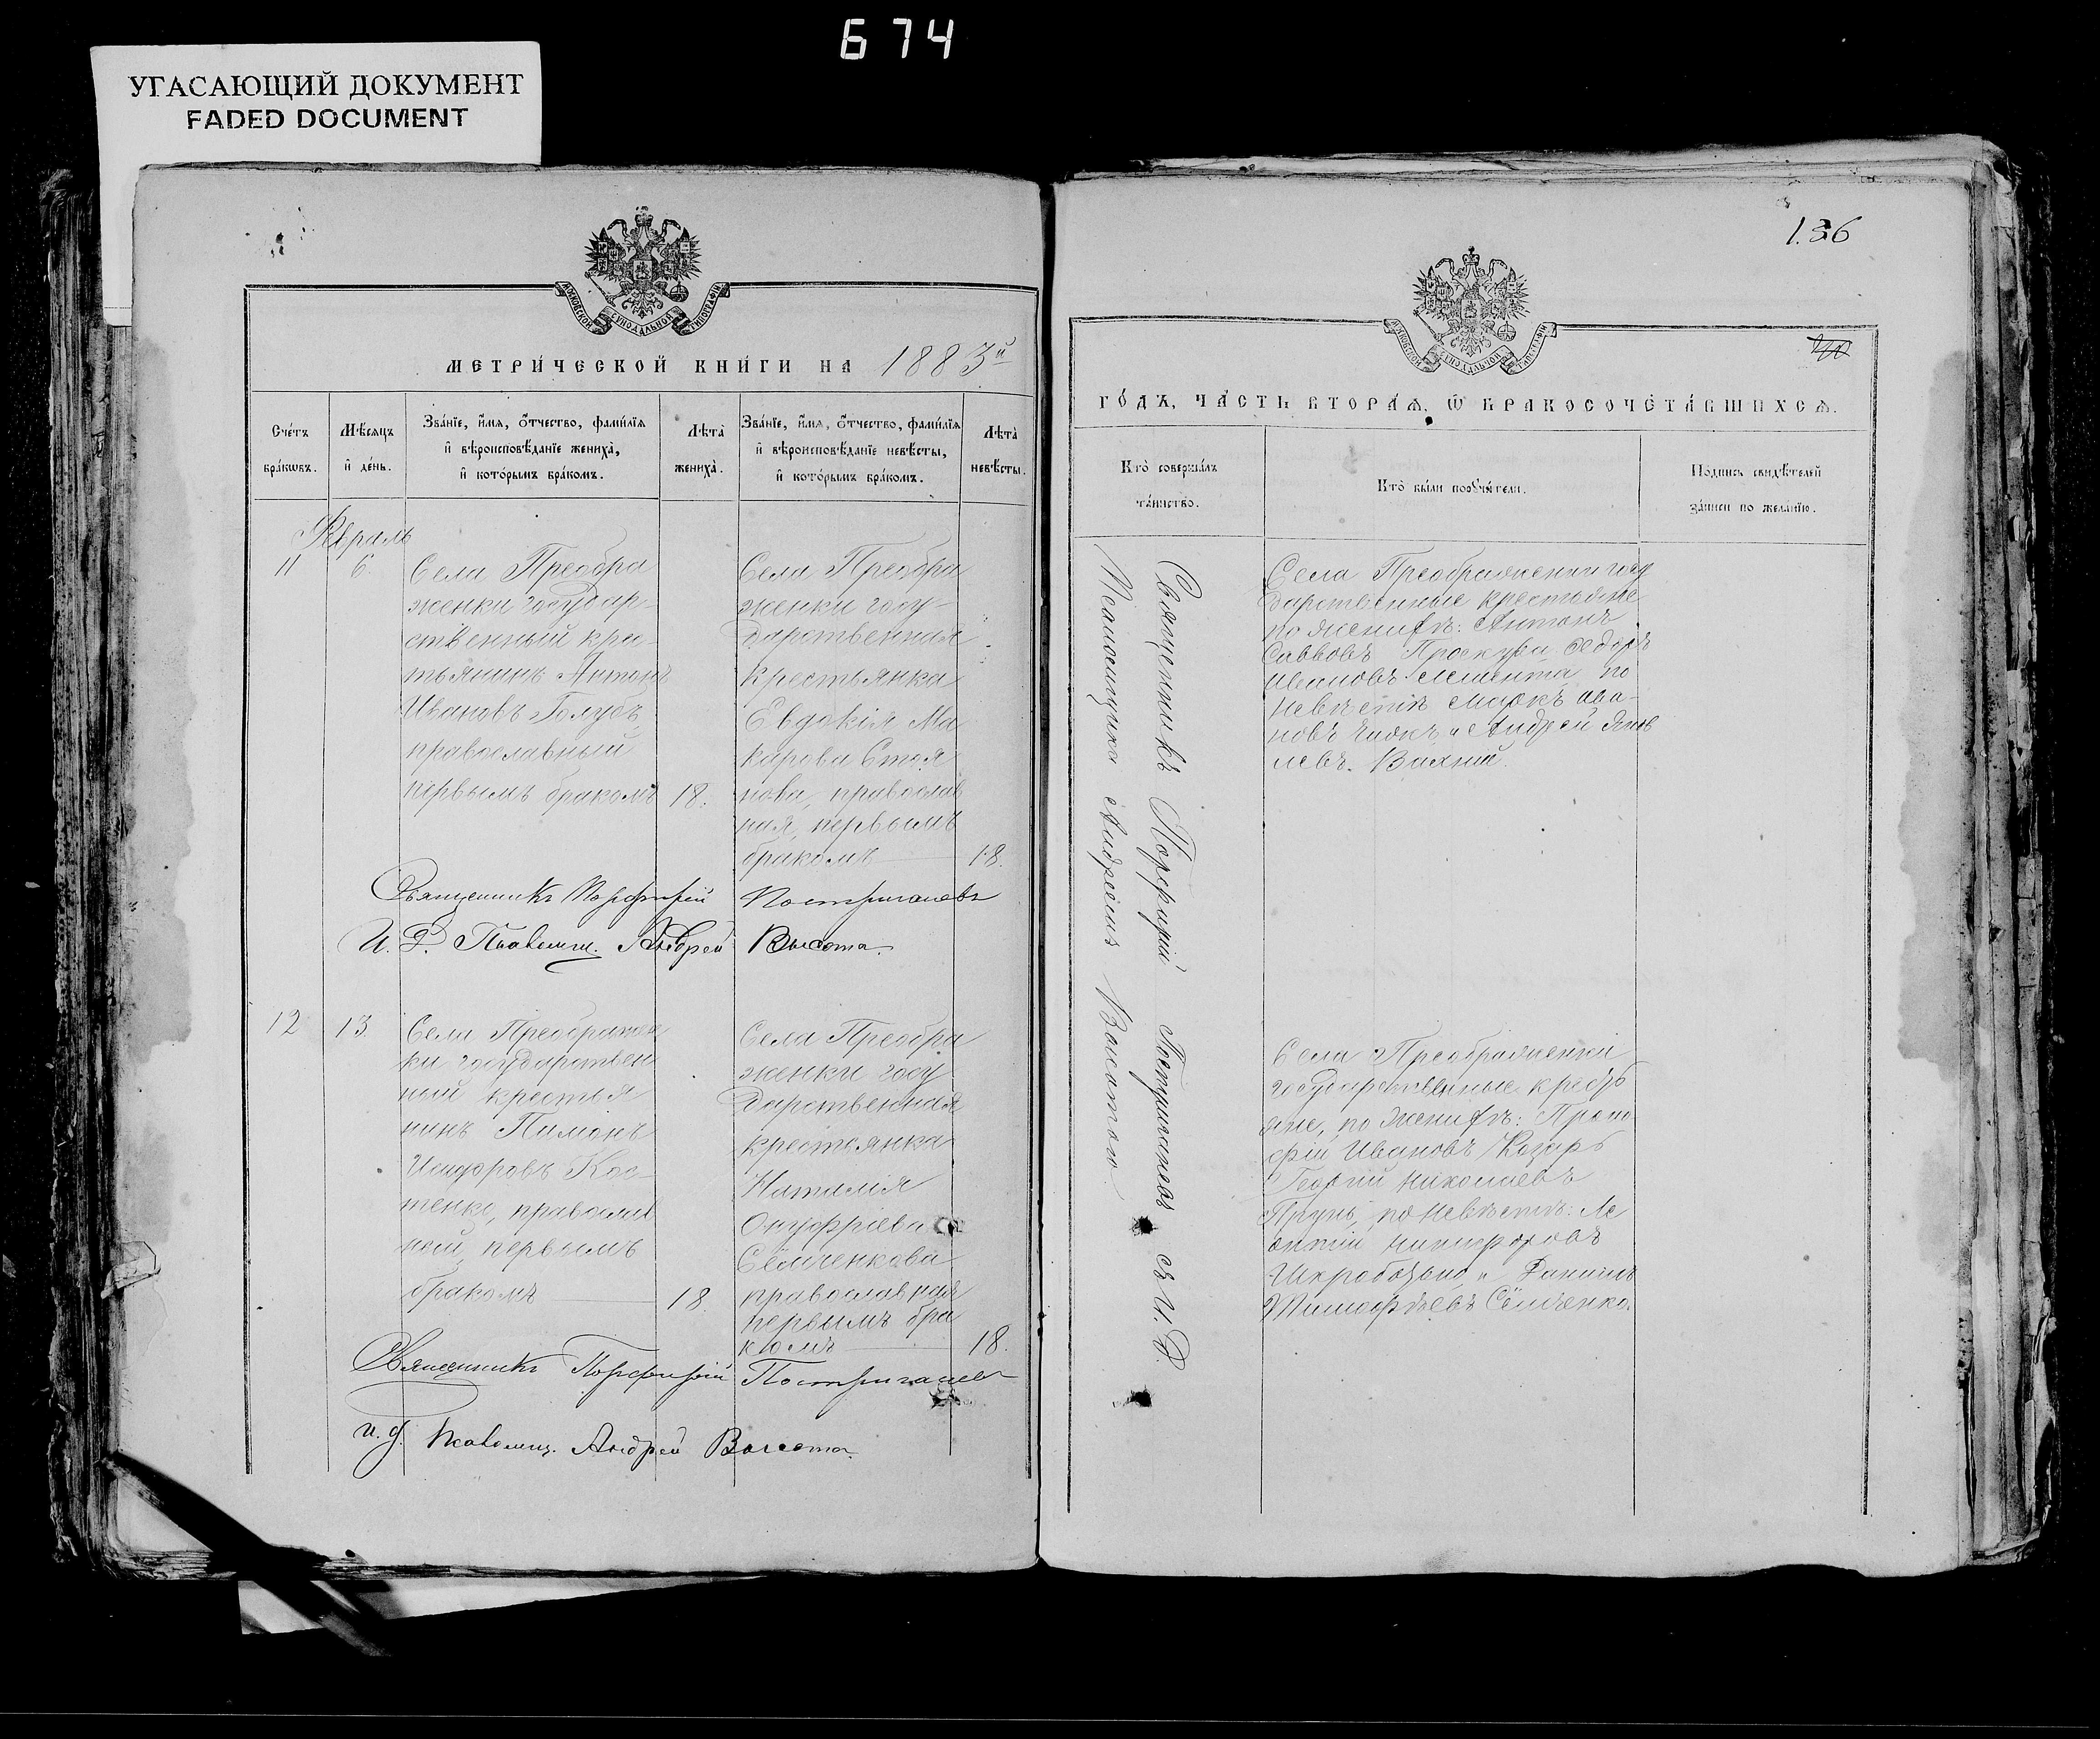 674
УГАСАЮЩИЙ ДОКУМЕНТ
FADED DOCUMENT
МОСКОВСКОЙ СѴНОДАЛЬНОЙ ТИПОГРАФІИ
МЕТРИ́ЧЕСКОЙ КНИ́ГИ НА 1883й
Сче́тъ бра́кωвъ.
Мѣ́сяцъ и҆ де́нь.
Зва́нїе, и҆́мѧ, ѻ҆́тчество, фами́лїѧ
и҆ вѣроисповѣ́данїе женихà,
и҆ кото́рымъ бра́комъ.
Лѣ́та женихà.
Зва́нїе, и҆́мѧ, ѻ҆́тчество, фами́лїѧ
и҆ вѣроисповѣ́данїе невѣ́сты,
и҆ кото́рымъ бра́комъ.
Лѣ́та невѣ́сты.
Февраль
11
6.
Села Преобра
женки государ-
ственный кре
тьянинъ Антонъ
Ивановъ Голубъ
православный
первымъ бракомъ
18.
Села Преобра
женки госу-
дарственная
крестьянка
Евдокія Ма
карова Стоя
нова, православ
ная, первымъ
бракомъ
18.
Священникъ Порфирій Постригачевъ
И. Д. Псаломщ. Андрей Высота.
12
13.
Села Преображен
ки государствен
ный крестья
нинъ Пимонъ
Исидоровъ Кос-
тенко, православ
ный, первымъ
бракомъ
18.
Села Преобра
женки госу
дарственная
крестьянка
Наталія
Онуфріева
Сёмченкова
православная
первымъ бра
комъ
18.
Священникъ Порфирій Постригачевъ
и. д. Псаломщ. Андрей Высота.
136
МОСКОВСКОЙ СѴНОДАЛЬНОЙ ТИПОГРАФІИ
ГО́ДЪ, ЧА́СТЬ ВТОРА́Ѧ, Ѽ БРАКОСОЧЕТА́ВШИХСѦ.
Кто̀ соверша́лъ
та́инство.
Кто̀ бы́ли порꙋчи́тели.
По́дпись свидѣ́телей
за́писи по жела́нїю.
Священникъ Порфирій Постригачевъ съ И. Д.
Псаломщика Андреемъ Высотою
Села Преображенки госу
дарственные крестьяне
по женихѣ: Антонъ
Саввовъ Проскура, Ѳедоръ
Ивановъ по
невѣстѣ Маркъ Ива-
новъ и Андрей Яков
левъ
Села Преображенки
государственные кресть
яне, по женихѣ: Проко
фій Ивановъ Козырь
Георгій Николаевъ
по невѣстѣ: Ле
онтій Никифоровъ
и Даніилъ
Тимофѣевъ Сёмченко.